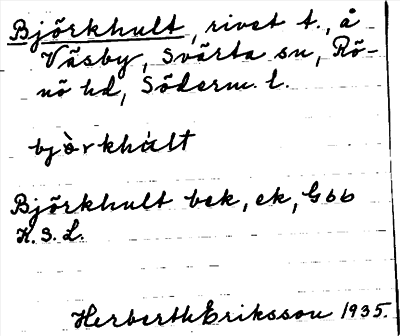 Björkhult, rivet t., å
Väsby, Svärta sn, Rö-
nö hd, Söderm. l.
bjò̀rkhúlt
Björkhult bek, ek, G66
K. S. L.
Herberth Eriksson 1935.